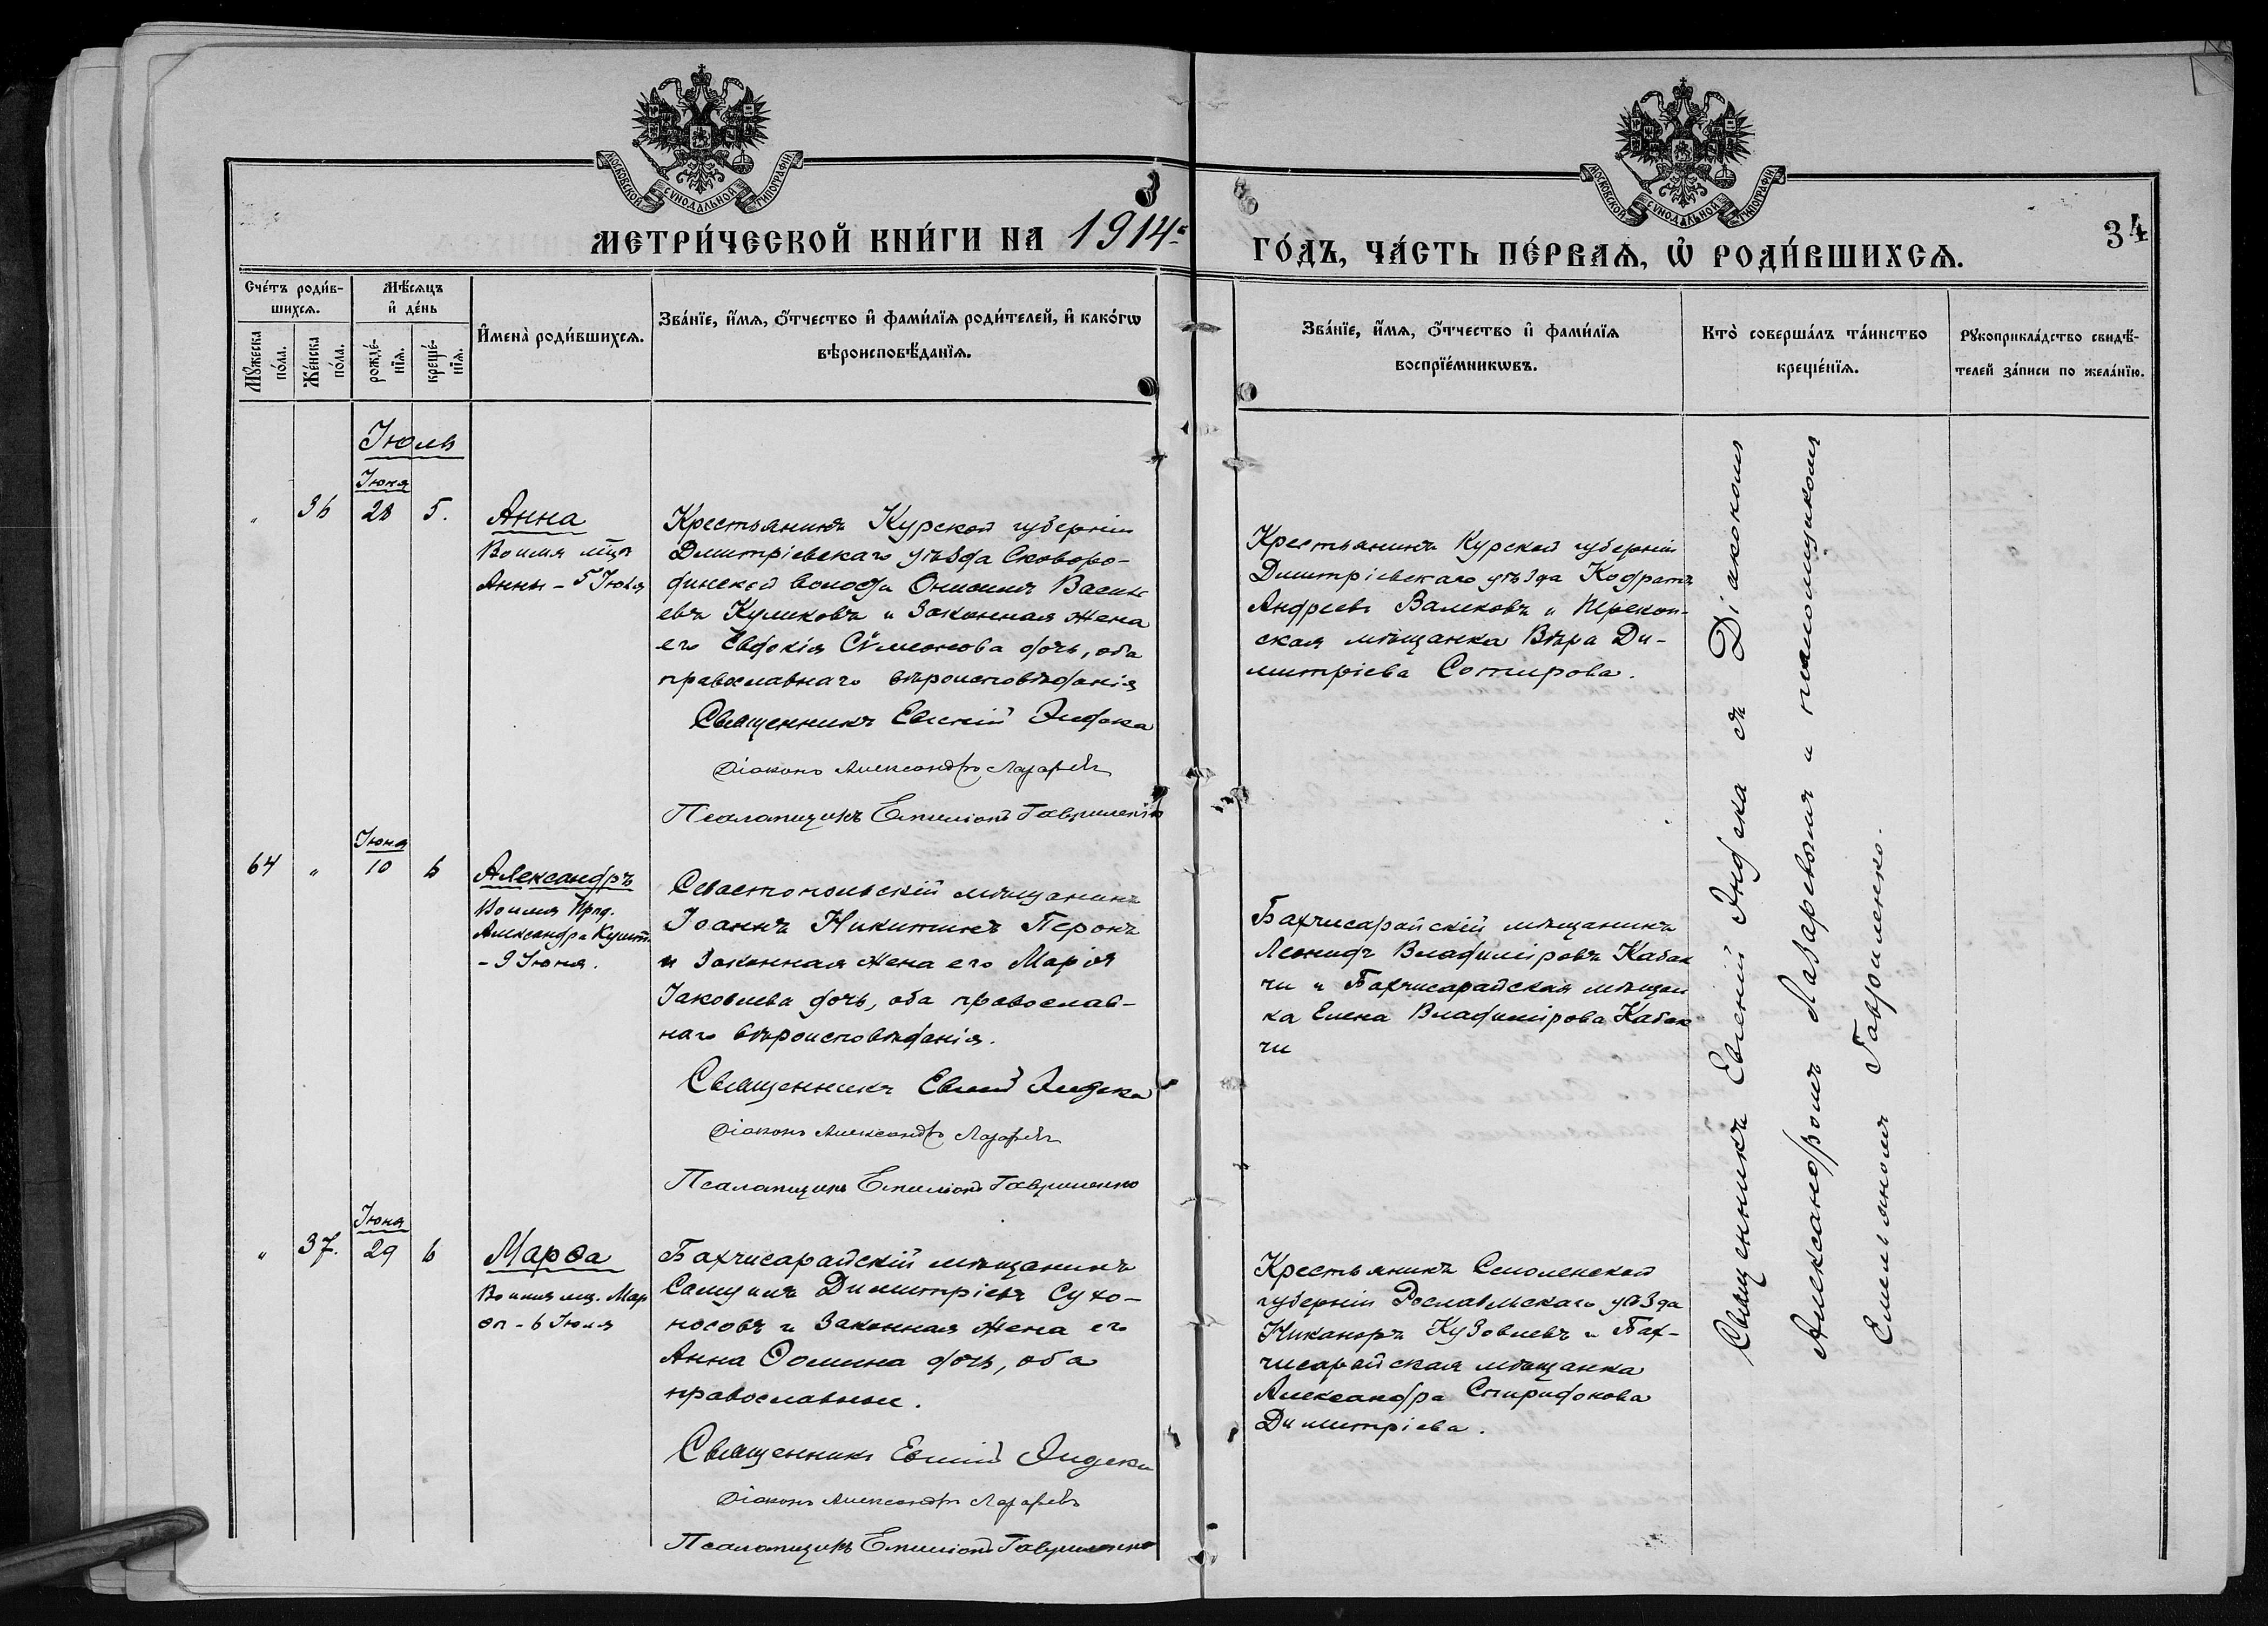 МОСКОВСКОЙ СѴНОДАЛЬНОЙ ТИПОГРАФІИ
МОСКОВСКОЙ СѴНОДАЛЬНОЙ ТИПОГРАФІИ
МЕТРИ́ЧЕСКОЙ КНИ́ГИ НА 1914
ГО́ДЪ, ЧА́СТЬ ПЕ́РВАѦ, Ѡ҆ РОДИ́ВШИХСѦ.
34
Сче́тъ роди́в-
шихсѧ.
Мѣ́сѧцъ
и҆ де́нь
Мꙋ́жеска
по́ла.
Же́нска
по́ла.
рожде́-
нїѧ.
креще́-
нїѧ.
И҆мена̀ роди́вшихсѧ.
Зва́нїе, и҆́мѧ, ѻ҆́тчество и҆ фами́лїѧ роди́телей, и҆ како́гѡ
вѣроисповѣ́данїѧ.
Зва́нїе, и҆́мѧ, ѻ҆́тчество и҆ фами́лїѧ
воспрїе́мникѡвъ.
Кто̀ соверша́лъ та́инство
креще́нїѧ.
Рꙋкоприкла́дство свидѣ́-
телей за́писи по жела́нїю.
Іюль
Іюня
" 36 28 5.
Анна
Во имя мц.
Анны - 5 Іюля
Крестьянинъ Курской губерніи
Дмитріевскаго уѣзда Сковоро-
динской волости Онисимъ Василь
евъ Куликовъ и Законная жена
его Евдокія Сѵмеонова дочь, оба
православнаго вѣроисповѣданія
Священникъ Евгеній Эндека
Діаконъ Александръ Лазаревъ
Псаломщикъ Емиліанъ Гавриленко
Крестьянинъ Курской губерніи
Димитріевскаго уѣзда Кодратъ
Андреевъ Валековъ и Перекоп-
ская мѣщанка Вѣра Ди-
митріева Сотирова.
Іюня
64 " 10 6
Александръ
Во имя Прпд.
Александра Кушт.
- 9 Іюня.
Севастопольскій мѣщанинъ
Іоаннъ Никитинъ Перонъ
и Законная жена его Марія
Іаковлева дочь, оба православ-
наго вѣроисповѣданія.
Священникъ Евгеній Эндека
Діаконъ Александръ Лазаревъ
Псаломщикъ Емиліанъ Гавриленко
Бахчисарайскій мѣщанинъ
Леонидъ Владиміровъ Кабак
чи и Бахчисарайская мѣщан
ка Елена Владимірова Кабак
чи
Іюня
" 37. 29 6
Марѳа
Во имя мц. Мар
ѳы - 6 Іюля
Бахчисарайскій мѣщанинъ
Самуилъ Димитріевъ Сухо-
носовъ и Законная жена его
Анна Ѳомина дочь, оба
православные.
Священникъ Евгеній Эндека
Діаконъ Александръ Лазаревъ
Псаломщикъ Емиліанъ Гавриленко
Крестьянинъ Смоленской
губерніи Рославльскаго уѣзда
Никаноръ Кузовлевъ и Бах-
чисарайская мѣщанка
Александра Спиридонова
Димитріева.
Священникъ Евгеній Эндека съ Діакономъ
Александромъ Лазаревымъ и псаломщикомъ
Емельяномъ Гавриленко.